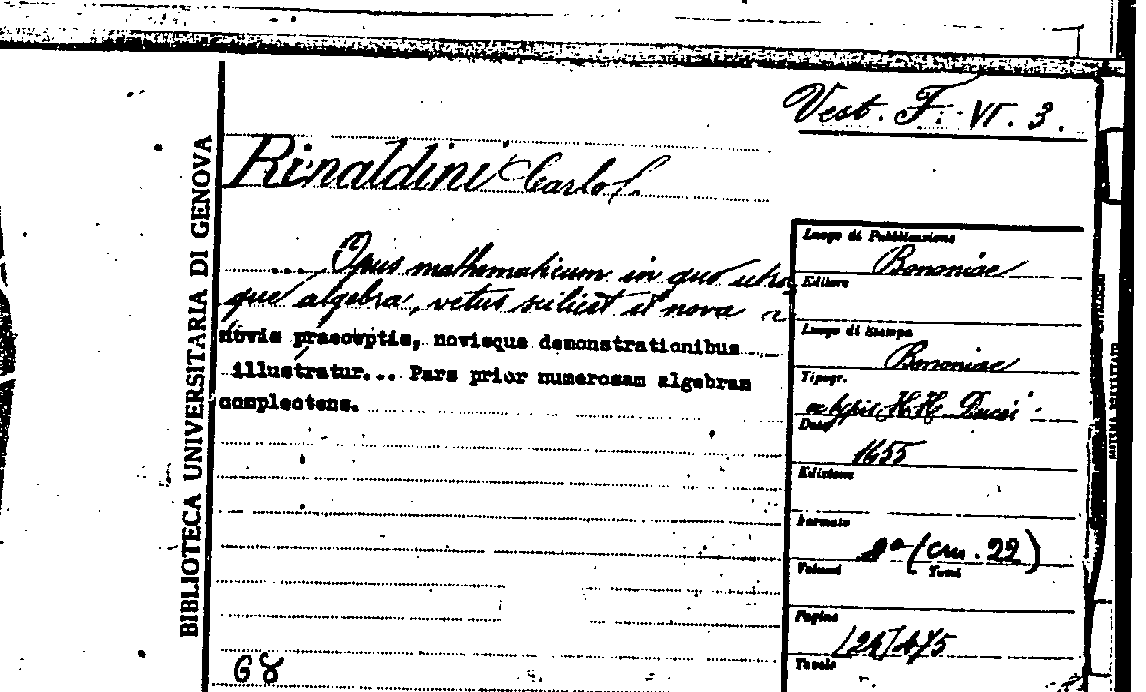 Vest. F. VI. 3.
BIBLIOTECA UNIVERSITARIA DI GENOVA
Rinaldini Carlo
... Opus mathematicum in quo utra
que algebra, vetus scilicet et nova
novis praeceptis, novisque demonstrationibus
illustratur... Pars prior numerosam algebram
complectens.
68
Luogo di Pubblicazione
Bononiae
Editore
Luogo di Stampa
Bononiae
Tipogr.
ex typis HH. Ducci
Data
1655
Edizione
Formato
(cm. 22)
Volumi
Tomi
Pagine
Tavole